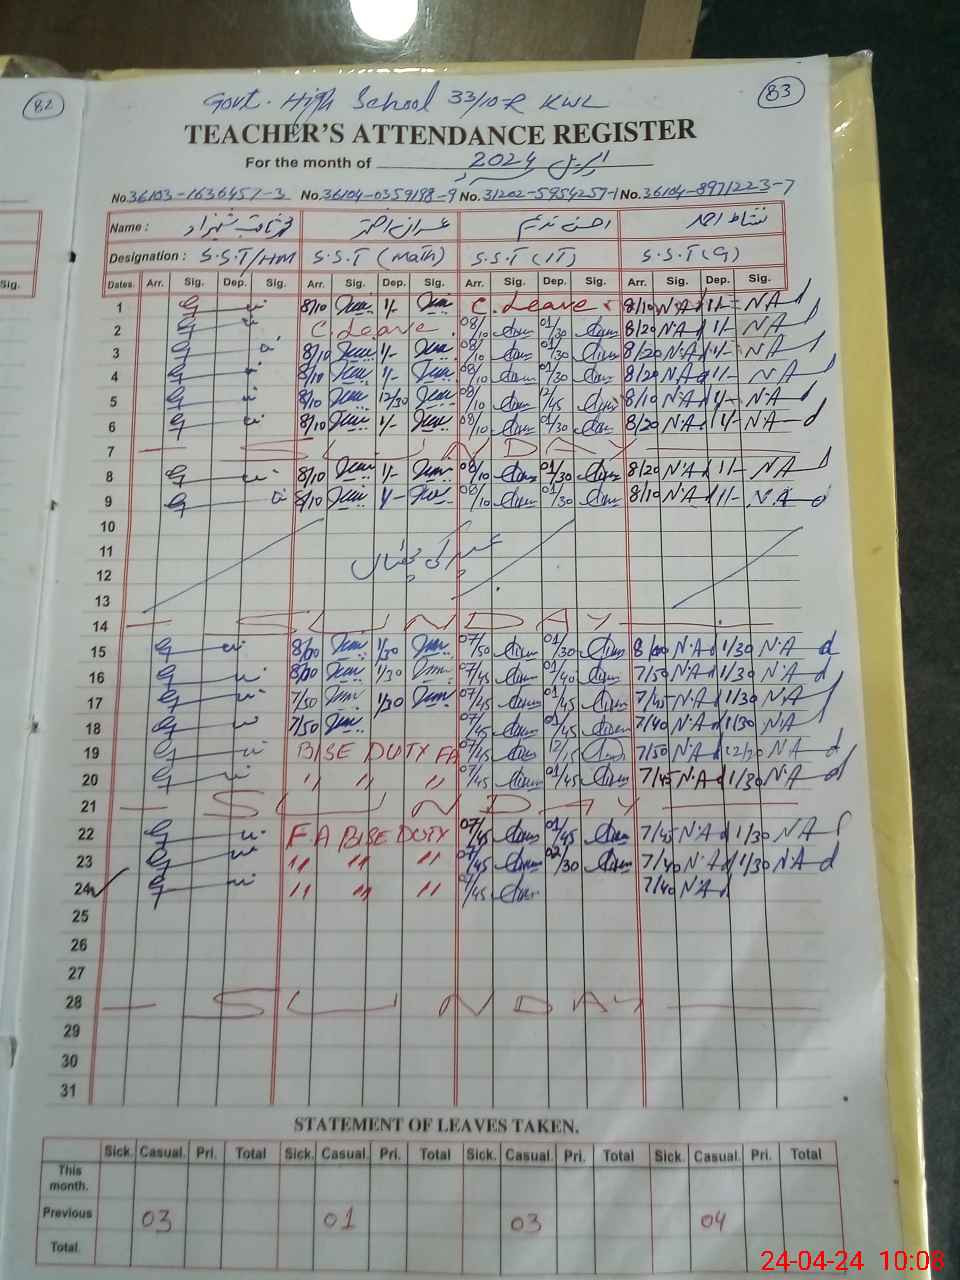 82
83
Govt. High School 33/10-R KWL
TEACHER'S ATTENDANCE REGISTER
For the month of اپریل 2024
No. 36103-1636457-3 No. 36104-0359198-9 No. 31202-5954257-1 No. 36104-8971223-7
Name : عمران اختر احسن ندیم نشاط احمد
Designation : S.S.T/HM S.S.T (Math) S.S.T (IT) S.S.T (G)
Sig. Dates. Arr. Sig. Dep. Sig. Arr. Sig. Dep. Sig. Arr. Sig. Dep. Sig. Arr. Sig. Dep. Sig.
1 8/10 1/- C. Leave 8/10 N.A 1/- N A
2 C. Leave 08/10 01/30 8/20 N.A 1/- N A
3 8/10 1/- 08/10 01/30 8/20 N.A 1/- N A
4 8/10 1/- 08/10 01/30 8/20 N.A 1/- N A
5 8/10 12/30 08/10 12/45 8/10 N.A 1/- N A
6 8/10 1/- 08/10 01/30 8/20 N.A 1/- N A
7 SUNDAY
8 8/10 1/- 08/10 01/30 8/20 N.A 1/- N A
9 8/10 1/- 08/10 01/30 8/10 N.A 1/- N.A
10
11 عید کی
12
13
14 SUNDAY
15 8/00 1/30 07/50 01/30 8/00 N.A 1/30 N A
16 8/00 1/30 07/45 01/40 7/50 N.A 1/30 N A
17 7/50 1/30 07/45 01/45 7/45 N.A 1/30 N A
18 7/50 07/45 01/45 7/40 N.A 1/30 N A
19 BISE DUTY FA 07/45 12/15 7/50 N.A 12/20 N A
20 " " " 07/45 01/45 7/45 N.A 1/30 N A
21 SUNDAY
22 F A BISE DUTY 07/45 01/45 7/45 N.A 1/30 N A
23 " " " 07/45 02/30 7/40 N.A 1/30 N A
24 " " " 07/45 7/40 N A
25
26
27
28 SUNDAY
29
30
31
STATEMENT OF LEAVES TAKEN.
Sick. Casual. Pri. Total Sick. Casual. Pri. Total Sick. Casual. Pri. Total Sick. Casual. Pri. Total
This month.
Previous 03 01 03 04
Total.
24-04-24 10:08